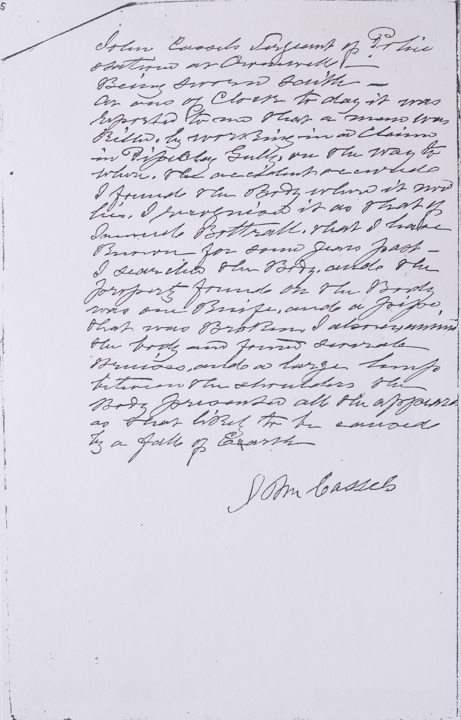 5
John Cassels Sergeant of Police
stationed at Cromwell
Being sworn saith —
At one of Clock to day it was
reported to me that a man was
Killed, by working in a Claim
in Pipe Clay Gully, on the way to
where, the accident occurred
I found the Body where it now
lies, I recognised it as that of
Samuel Bottrall, that I have
Known for some years past —
I searched the Body, and the
property found on the Body
was one Knife, and a pipe,
that was Broken, I also examined
the body and found severale
Bruises, and a large lump
between the shoulders the
Body presented all the appears
as that likely to be caused
by a fall of Earth
John Cassels